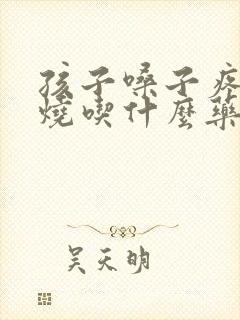 孩子嗓子疼
燒喫什麼藥
吴天明